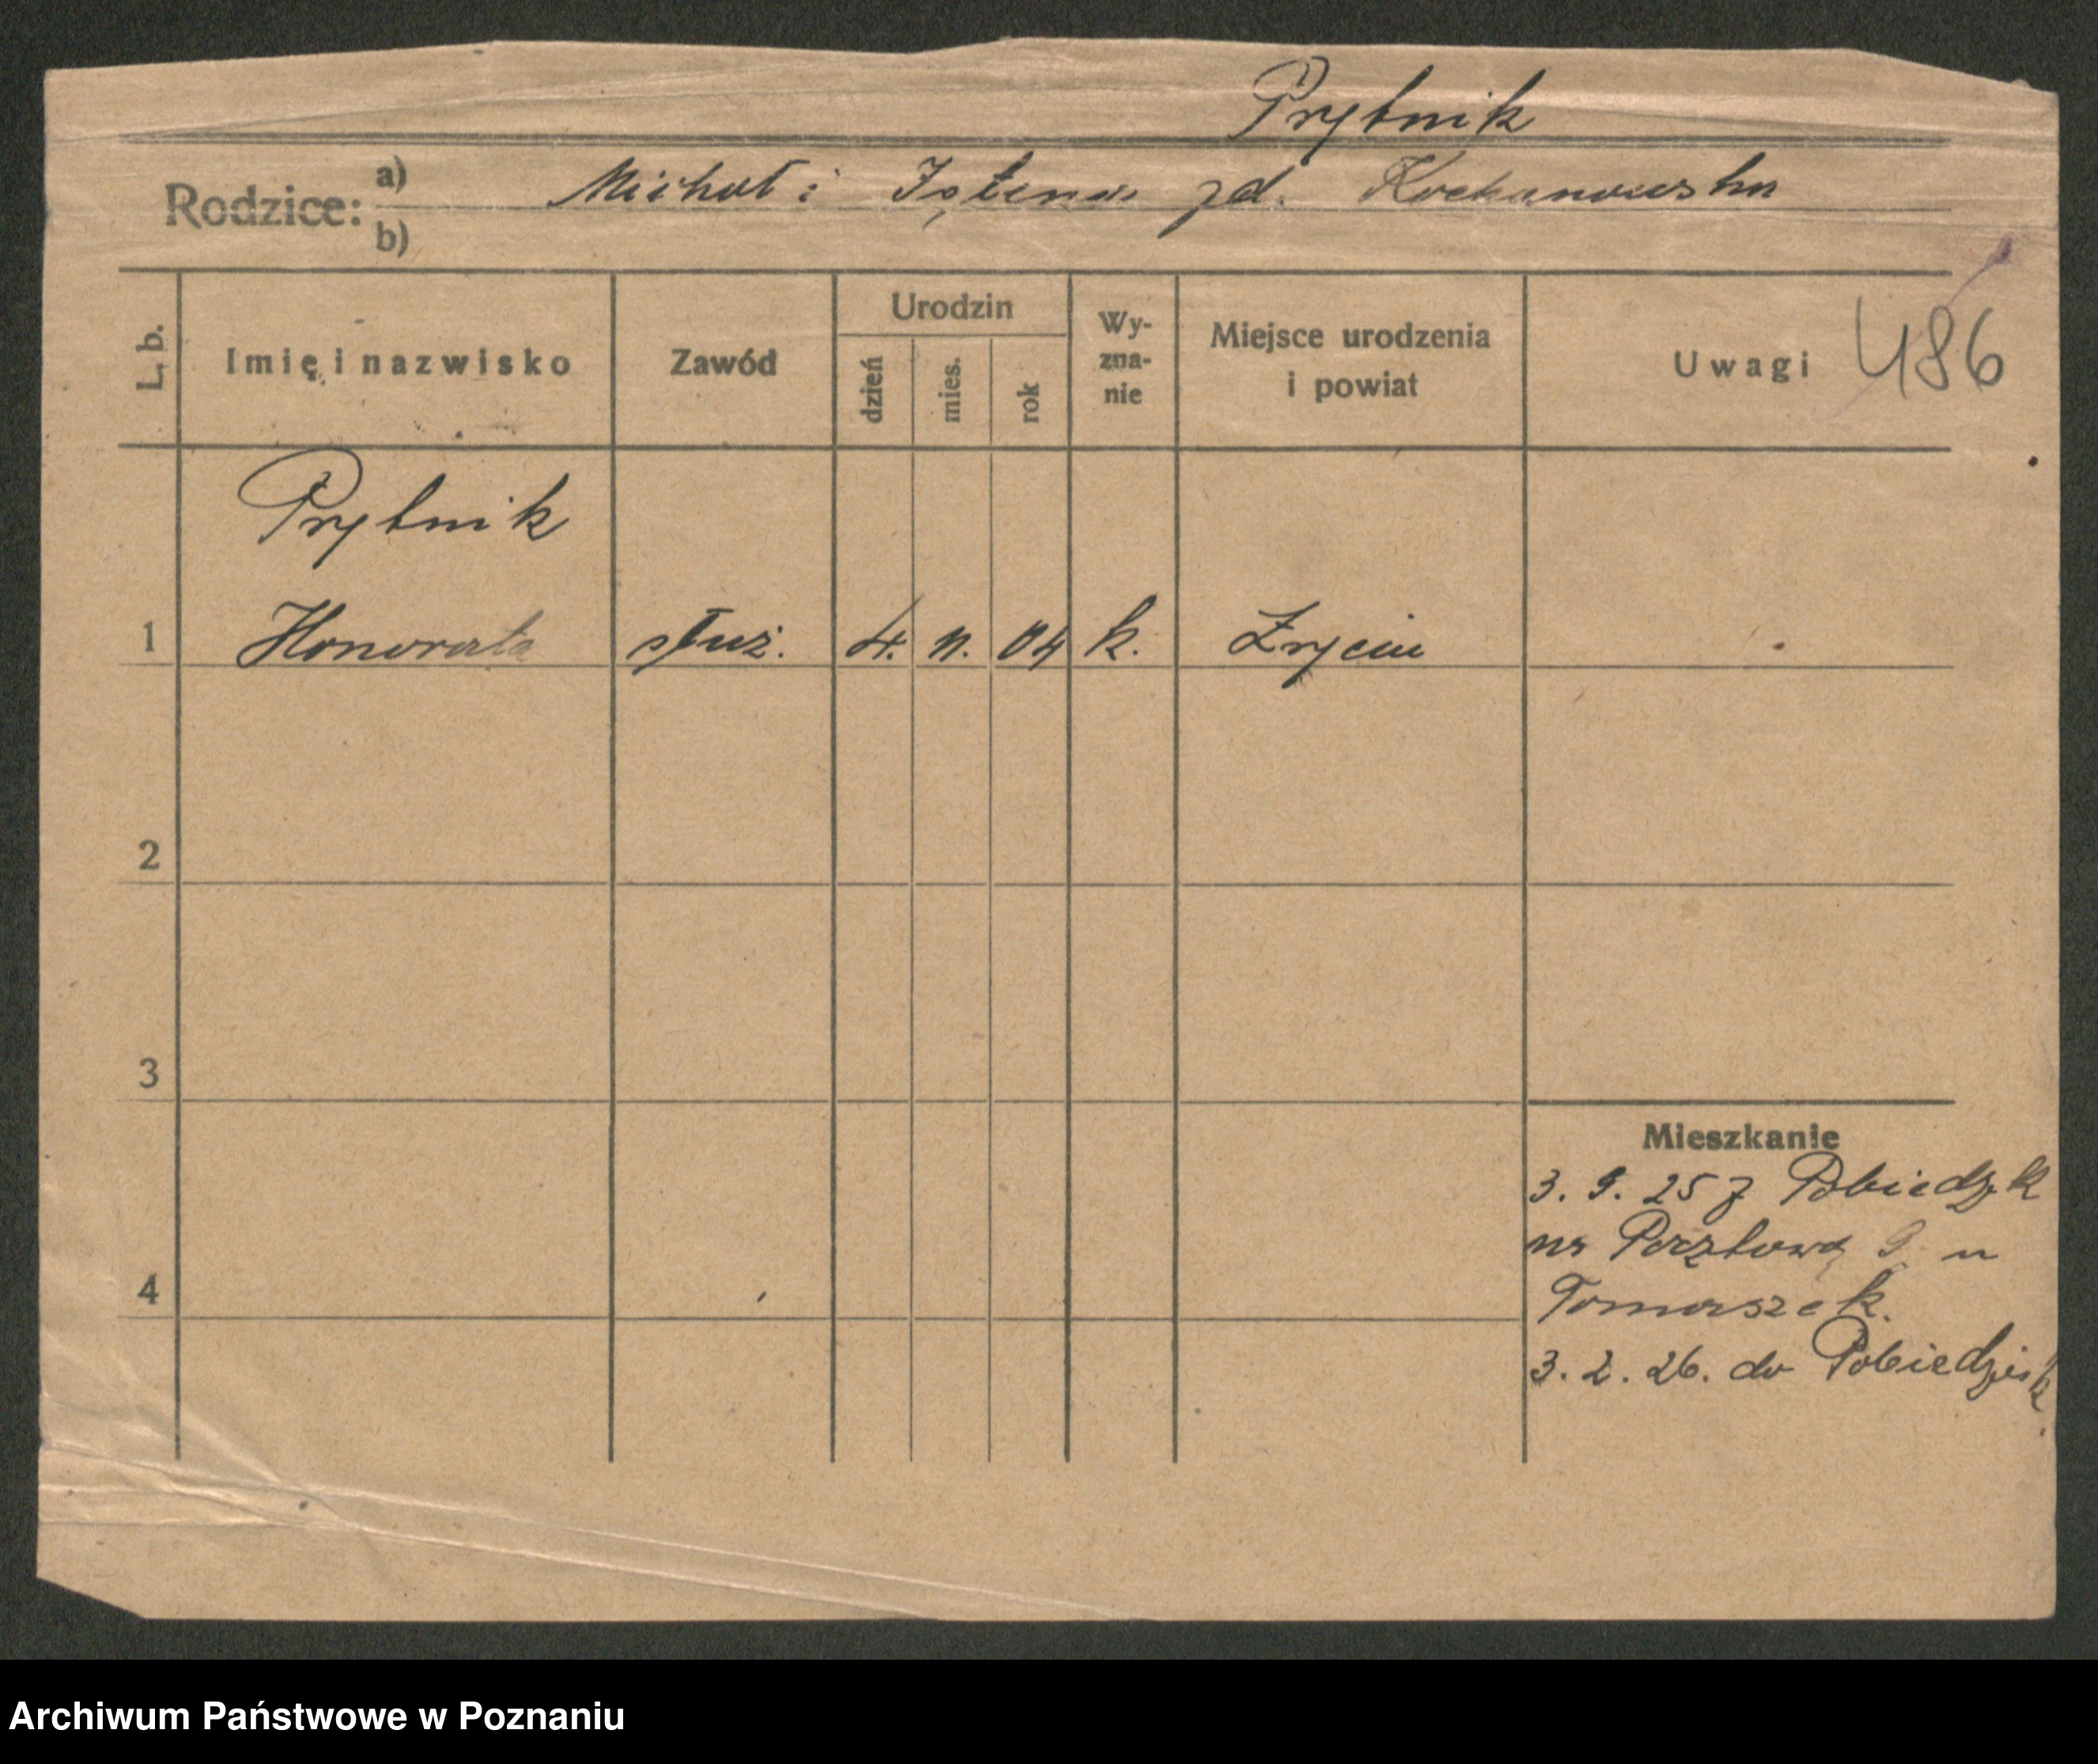 Prytnik
Rodzice: a) Michał i zd. Kochanowska
b)
L. b. Imię i nazwisko Zawód Urodzin dzień mies. rok Wyznanie Miejsce urodzenia i powiat Uwagi 486
Prytnik
1 Honorata służ. 4. 11. 04 k.
2
3
4
Mieszkanie
3. 9. 25 z Pobiedzk
na Pocztową 9 u
Tomaszek.
3. 2. 26. do Pobiedzisk.
Archiwum Państwowe w Poznaniu